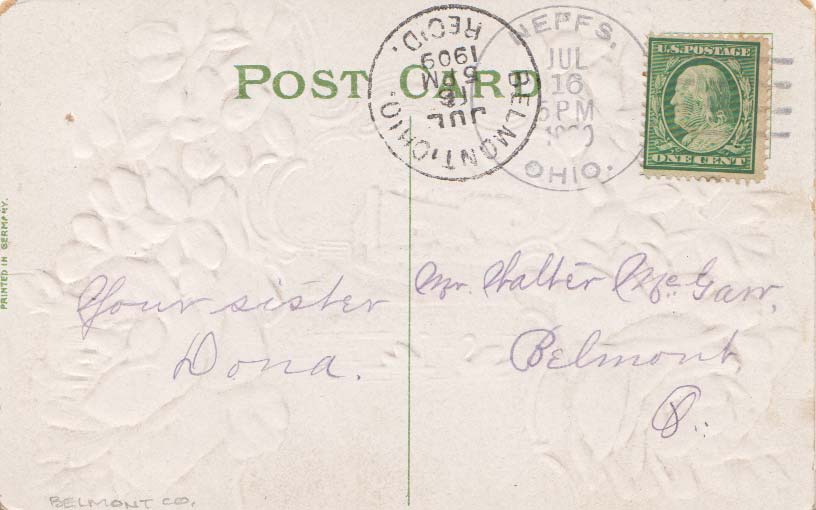 POST CARD
BELMONT, OHIO.
JUL
16
5 PM
1909
REC'D.
NEFFS,
JUL
16
5 PM
OHIO.
U.S. POSTAGE
ONE CENT
PRINTED IN GERMANY.
Your sister
Dona.
Mr. Walter McGaw,
Belmont,
O.
BELMONT CO.